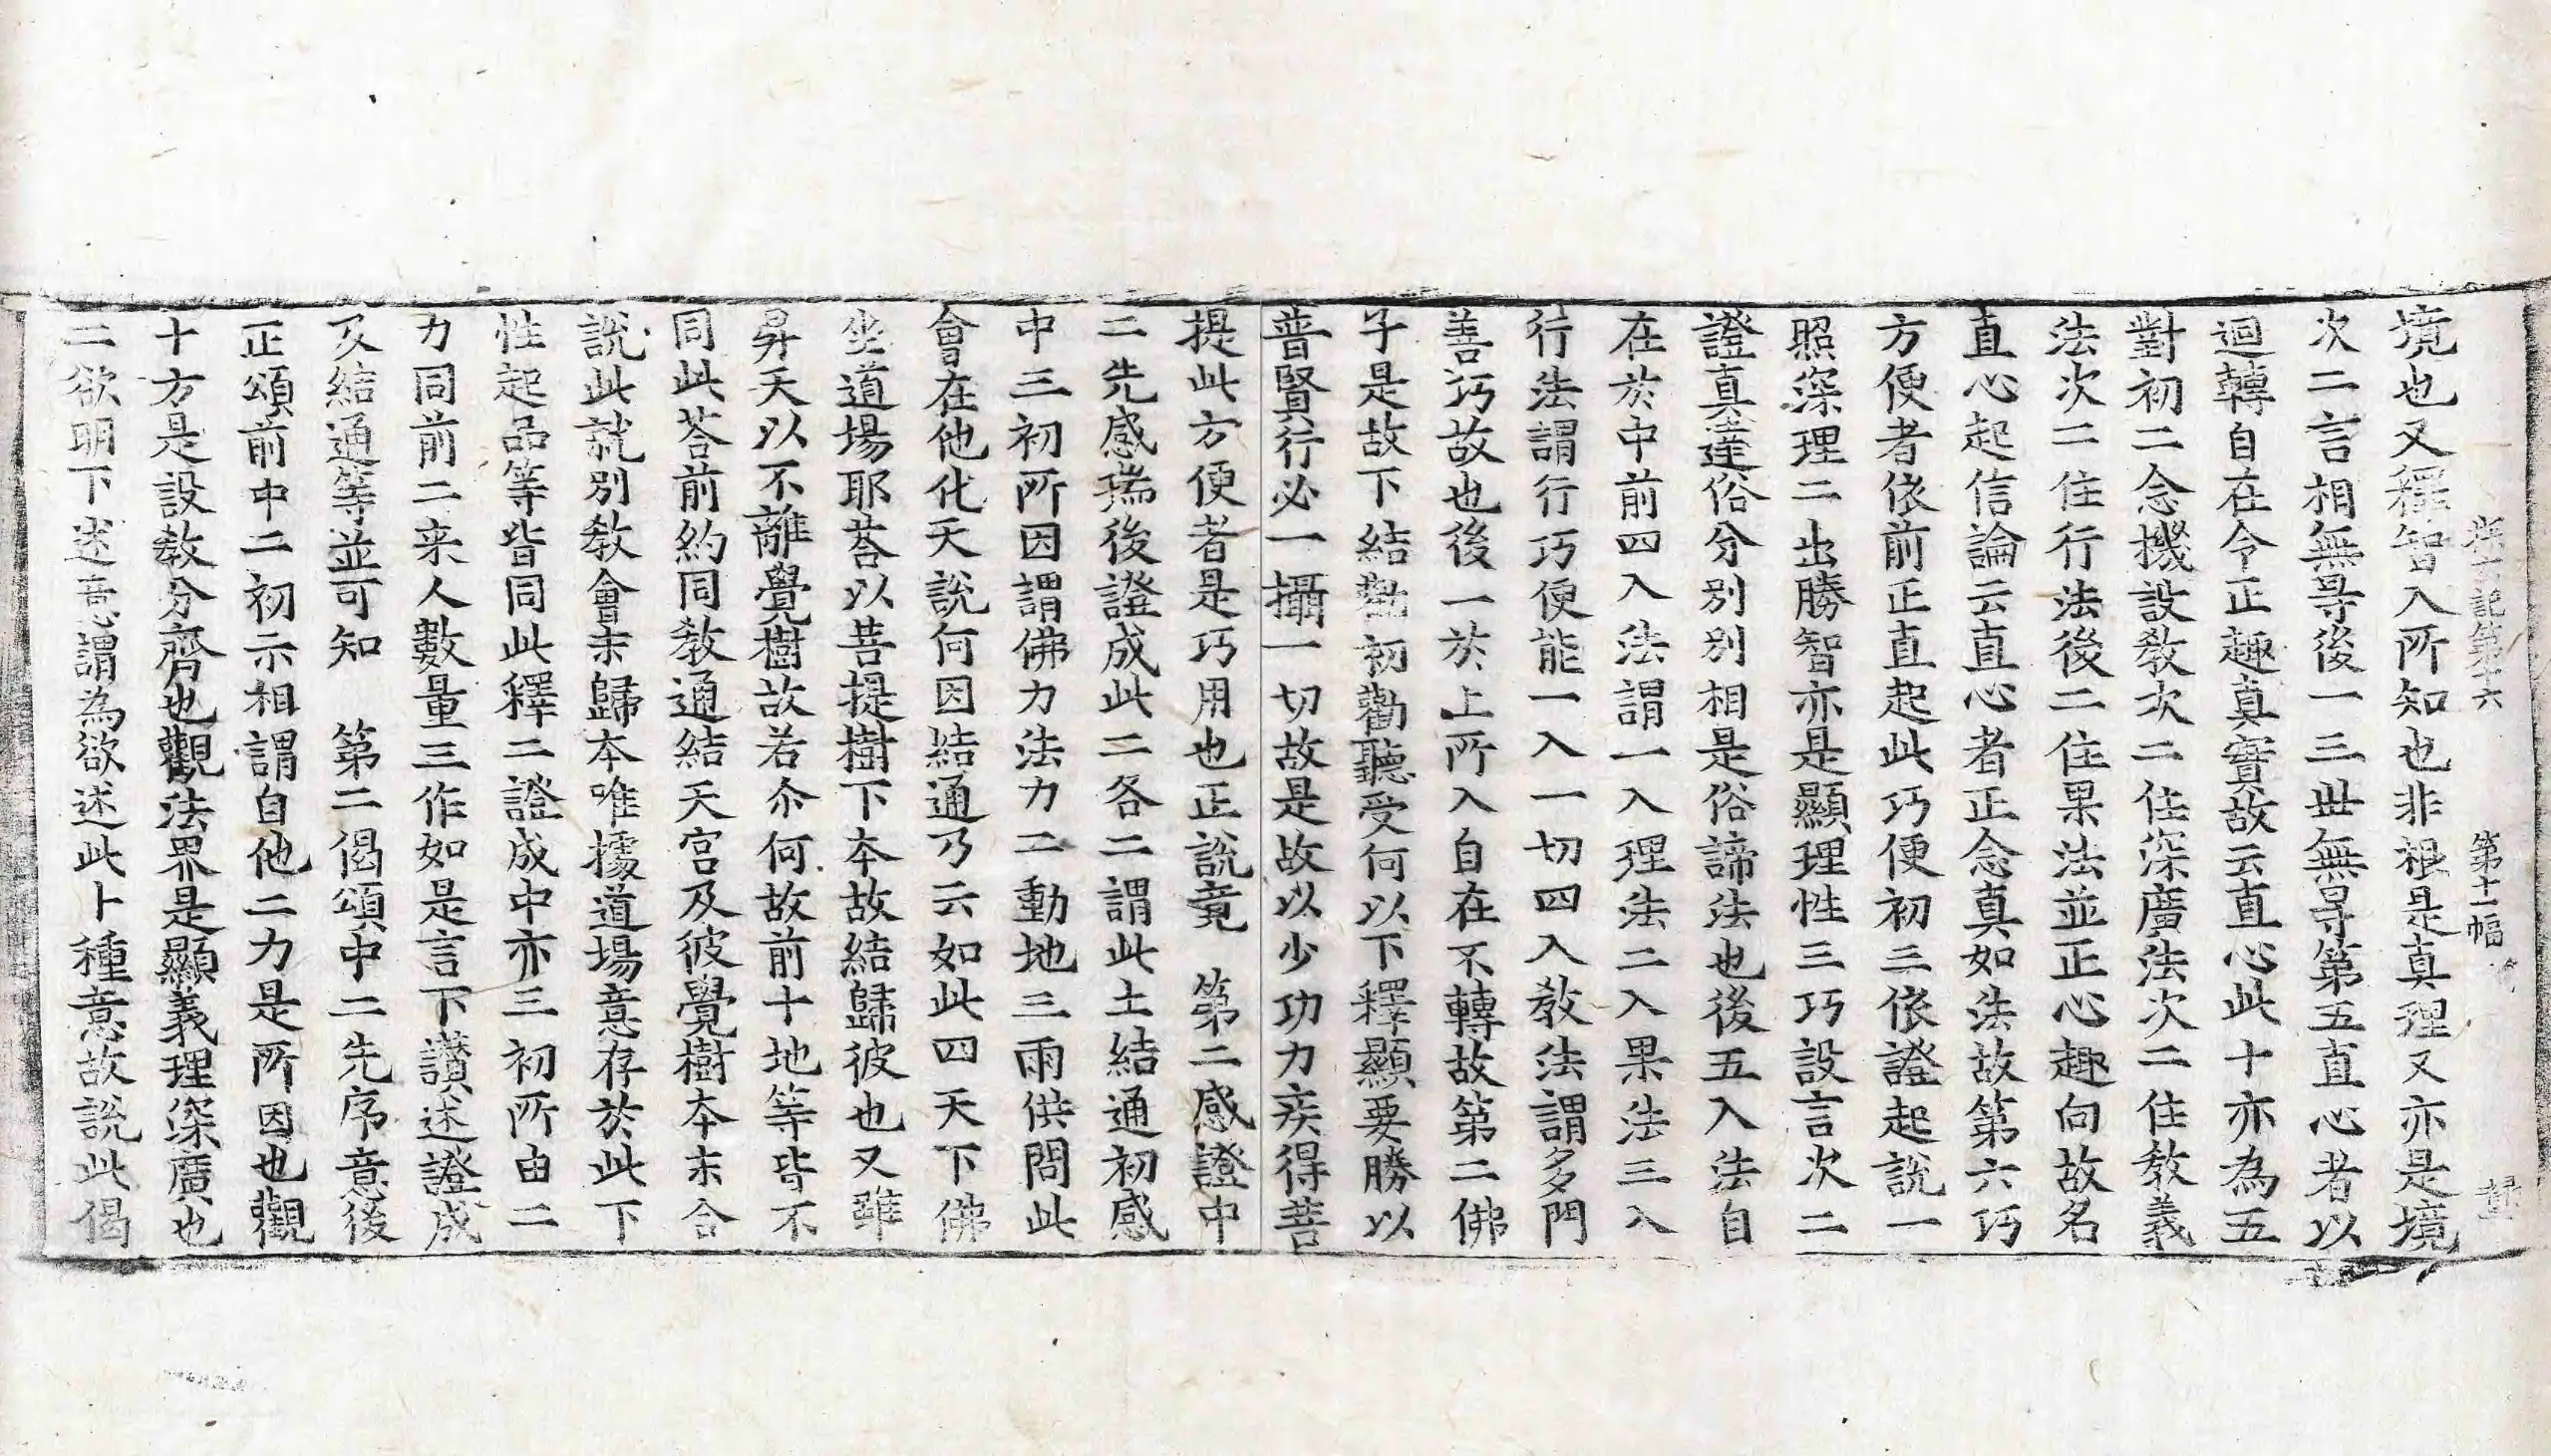 探玄記第十六 第十二幅
境也又釋智入所知也非根是真理又亦是境
次二言相無㝵後一三世無㝵第五直心者以
迴轉自在令正趣真實故云直心此十亦為五
對初二念機設教次二住深廣法次二住教義
法次二住行法後二住果法並正心趣向故名
直心起信論云直心者正念真如法故第六巧
方便者依前正直起此巧便初三依證起說一
照深理二出勝智亦是顯理性三巧設言次二
證真達俗分別別相是俗諦法也後五入法自
在於中前四入法謂一入理法二入果法三入
行法謂行巧便能一入一切四入教法謂多門
善巧故也後一於上所入自在不轉故第二佛
子是故下結勸初勸聽受何以下釋顯要勝以
普賢行必一攝一切故是故以少功力疾得菩
提此方便者是巧用也正說竟　第二感證中
二先感瑞後證成此二各二謂此土結通初感
中三初所因謂佛力法力二動地三雨供問此
會在他化天說何因結通乃云如此四天下佛
坐道場耶荅以菩提樹下本故結歸彼也又雖
昇天以不離覺樹故若尒何故前十地等皆不
同此荅前約同教通結天宮及彼覺樹本末合
說此就別教會末歸本唯據道場意存於此下
性起品等皆同此釋二證成中亦三初所由二
力同前二来人數量三作如是言下讚述證成
及結通等並可知　第二偈頌中二先序意後
正頌前中二初示相謂自他二力是所因也觀
十方是設教分齊也觀法界是顯義理深廣也
二欲明下述意謂為欲述此卜種意故說此偈